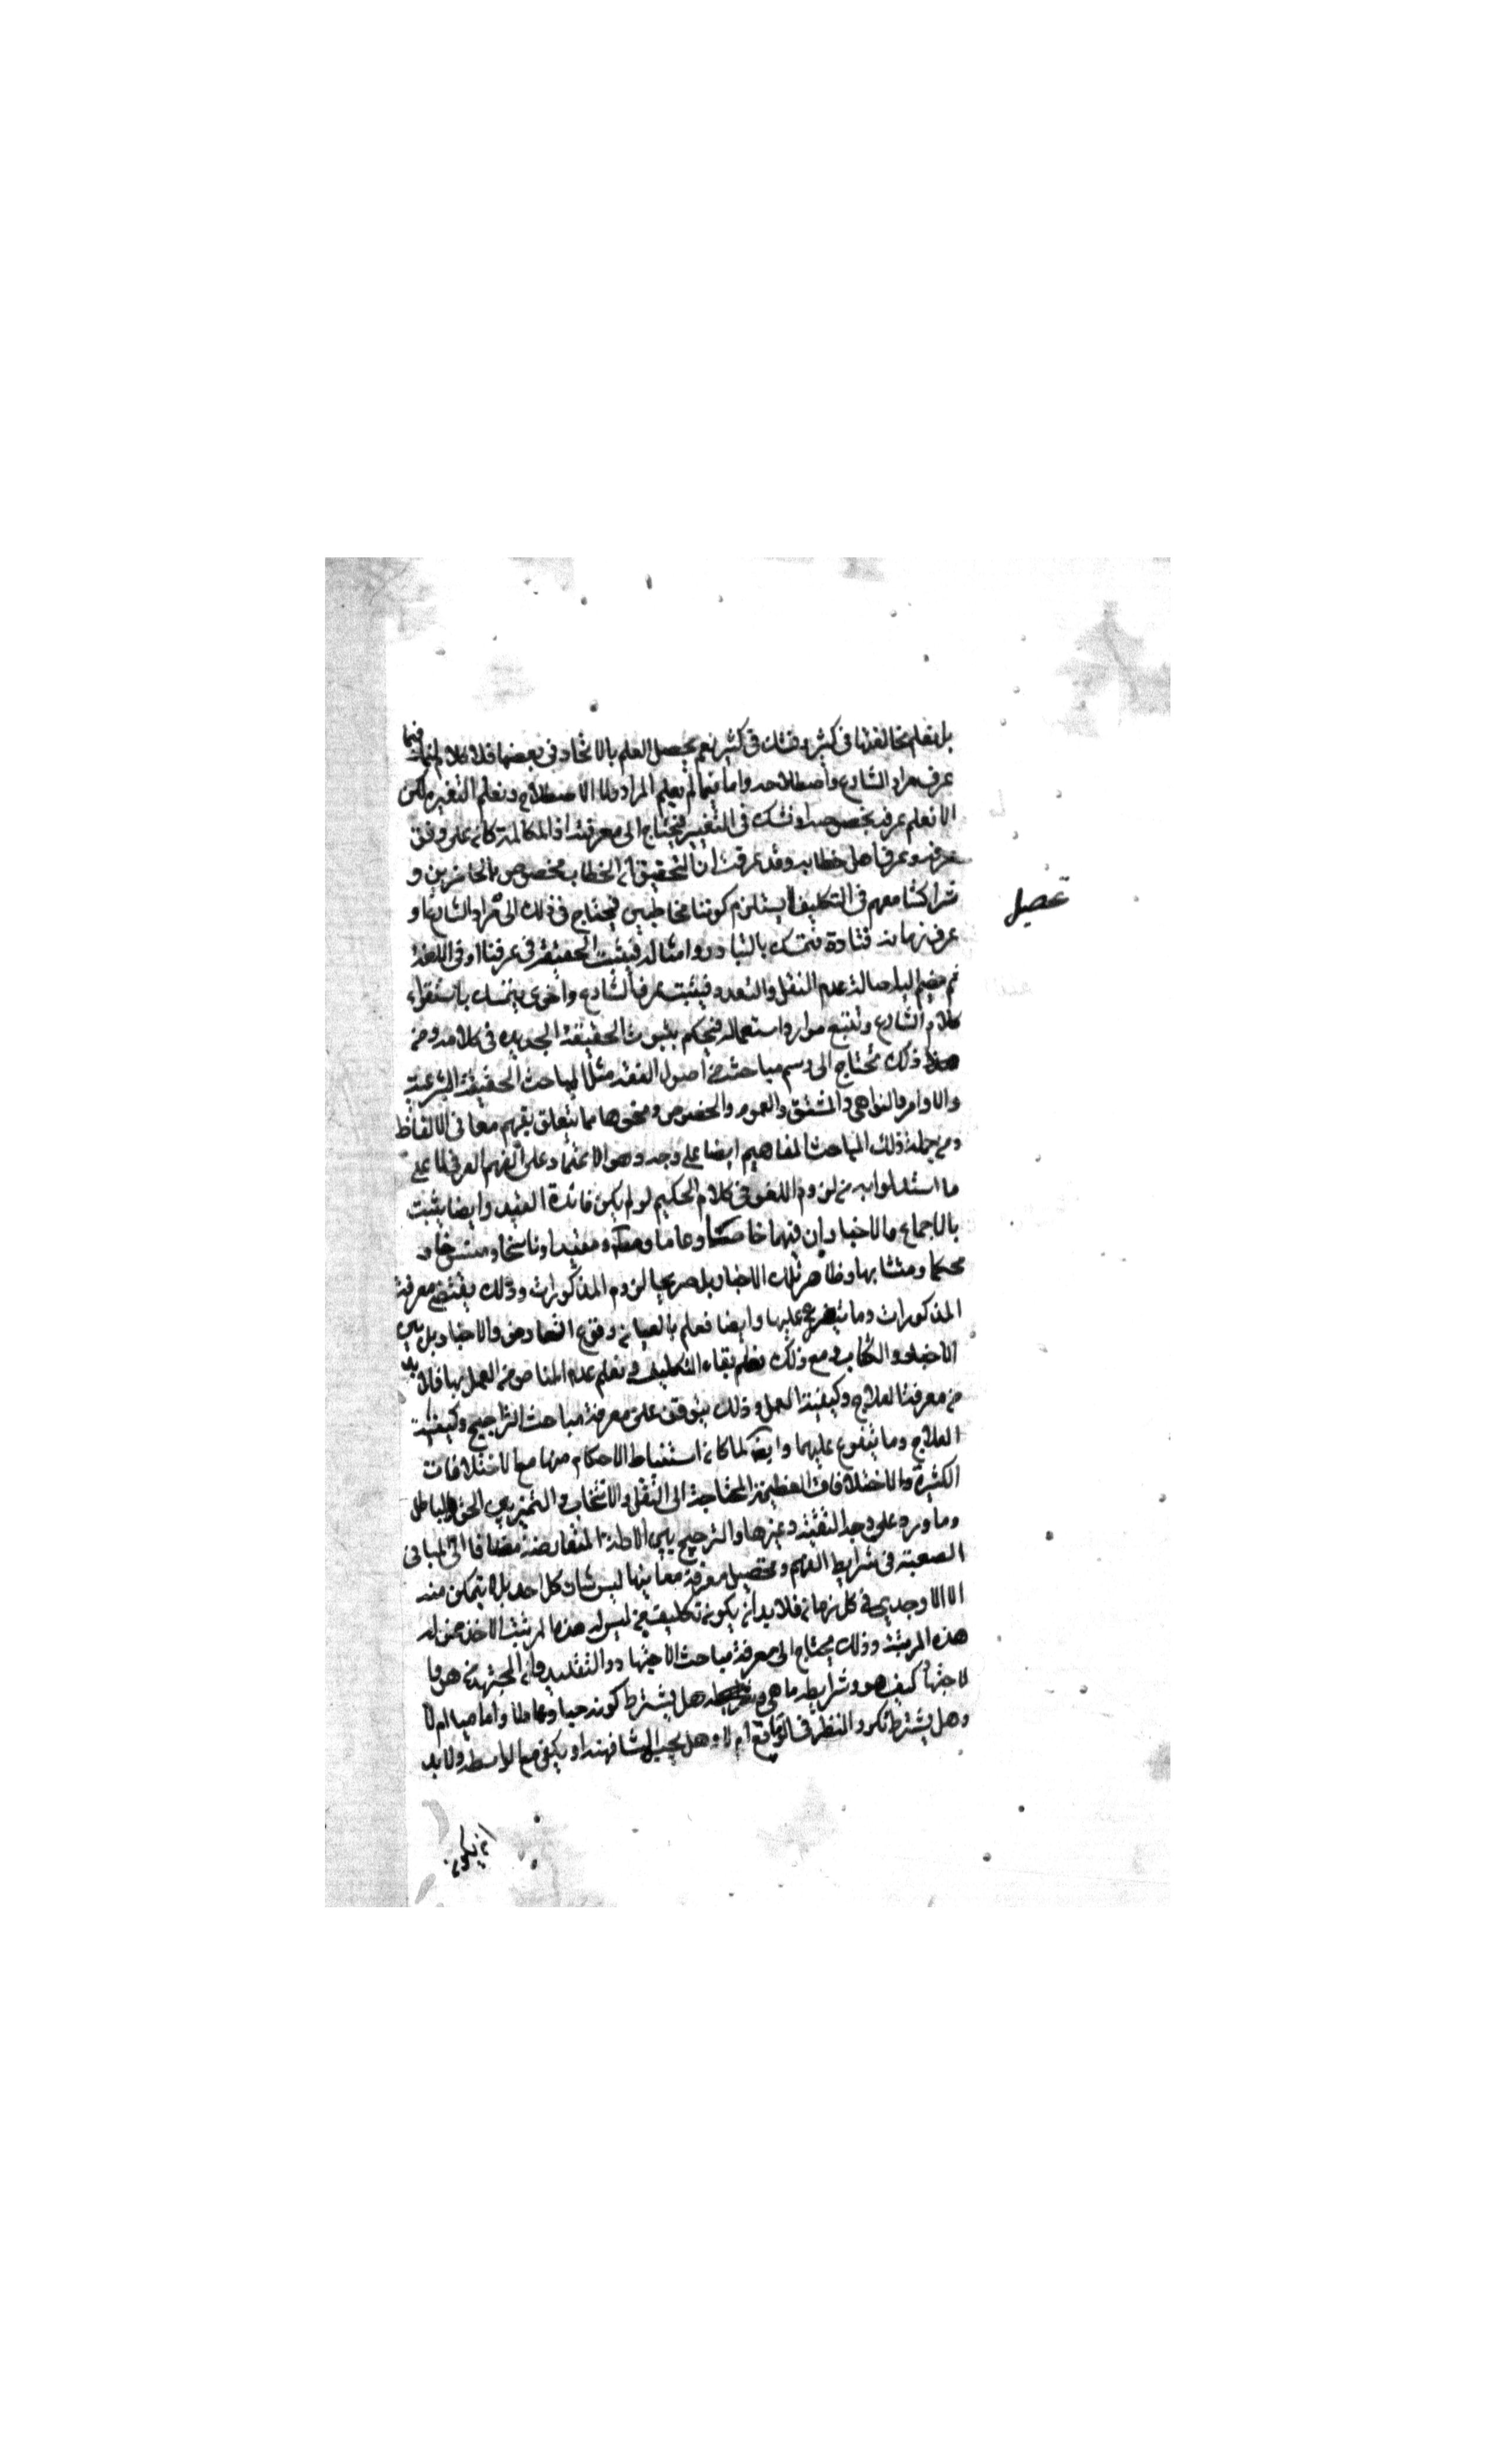 بل نعلم مخالفتها فى كثير ونشك فى كثير نعم يحصل العلم بالاتحاد فى بعضها فلا كلام فيما
عرف مراد الشارع واصطلاحه واما فيما لم يعلم المراد ولا الاصطلاح ونعلم التغير ولكن
لا نعلم عرفه بخصوصه او نشك فى التغيير فنحتاج الى معرفته اذ المكالمة كان على وفق
عرفه وعرف اهل خطابه وقد عرفت ان التحقيق ان الخطاب مخصوص بالحاضرين و
شراكتنا معهم فى التكليف لا يستلزم كوننا مخاطبين فيحتاج فى ذلك الى مراد الشارع او
تحصيل
عرف زمانه فتارة نتمسك بالتبادر وامثاله فيثبت الحقيقة فى عرفنا او فى اللغة
ثم نضم اليه اصالة عدم النقل والتعدد فيثبت عرف الشارع واخرى نتمسك باستقراء
كلام الشارع وتتبع موارد استعماله فنحكم بثبوت الحقيقة الجديدة فى كلامه ومن
ذلك نحتاج الى رسم مباحث من اصول الفقه مثل مباحث الحقيقة الشرعية
والاوامر والنواهى والمشتق والعموم والخصوص ونحوها مما يتعلق بفهم معانى الالفاظ
ومن جملة ذلك المباحث المفاهيم ايضا على وجه وهو الاعتماد على الفهم العرفى لا على
ما استدلوا به من لزوم اللغو فى كلام الحكيم لو لم يكن فائدة القيد وايضا يثبت
بالاجماع والاخبار ان فيها خاصا وعاما ومطلقا ومقيدا وناسخا ومنسوخا و
محكما ومتشابها وظاهر تلك الاخبار بل صريحها لزوم المذكورات وذلك يقتضى معرفة
المذكورات وما يتفرع عليها وايضا نعلم بالعيان وقوع التعارض والاخبار بل بين
الاخبار والكتاب ومع ذلك نعلم بقاء التكليف ونعلم عدم المناص من العمل بها فلا بد
من معرفة العلاج وكيفية العمل وذلك يتوقف على معرفة مباحث التراجيح وكيفية
العلاج وما يتفرع عليهما وايضا لما كان استنباط الاحكام منها مع الاختلافات
الكثيرة والاختلافات العظيمة المحتاجة الى النقل والانتخاب والتميز بين الحق والباطل
وما ورد على وجه التقية وغيرها والترجيح بين الادلة المتعارضة مضافا الى المبانى
الصعبة فى شرايط الفهم وتحصيل معرفة معانيها ليس شان كل احد بل لا يتمكن منه
الا الاوحدى فى كل زمان فلا بد ان يكون تكليف من ليس له هذه المرتبة الاخذ ممن له
هذه المرتبة وذلك يحتاج الى معرفة مباحث الاجتهاد والتقليد وان المجتهد من هو وا
لاجتهاد كيف هو وشرايطه ما هى وهل يشترط كونه حيا وعادلا واماميا ام لا
وهل يشترط تكرر النظر فى الوقايع ام لا وهل يجب المشافهة او يكفى مع الواسطة ولا بد
ان يكون